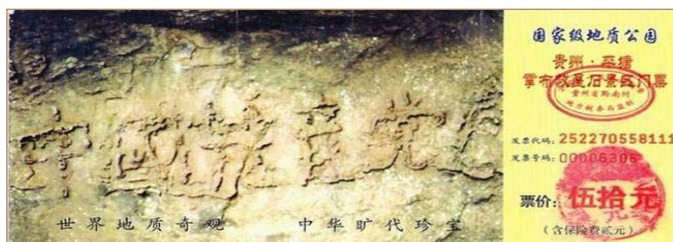 中国共产党亡
世界地质奇观 中华旷代珍宝
国家级地质公园
贵州·平塘
掌布救星石景区门票
贵州省黔南州
发票代码: 252270558111
发票号码: 00006306
票价: 伍拾元
(含保险费贰元)